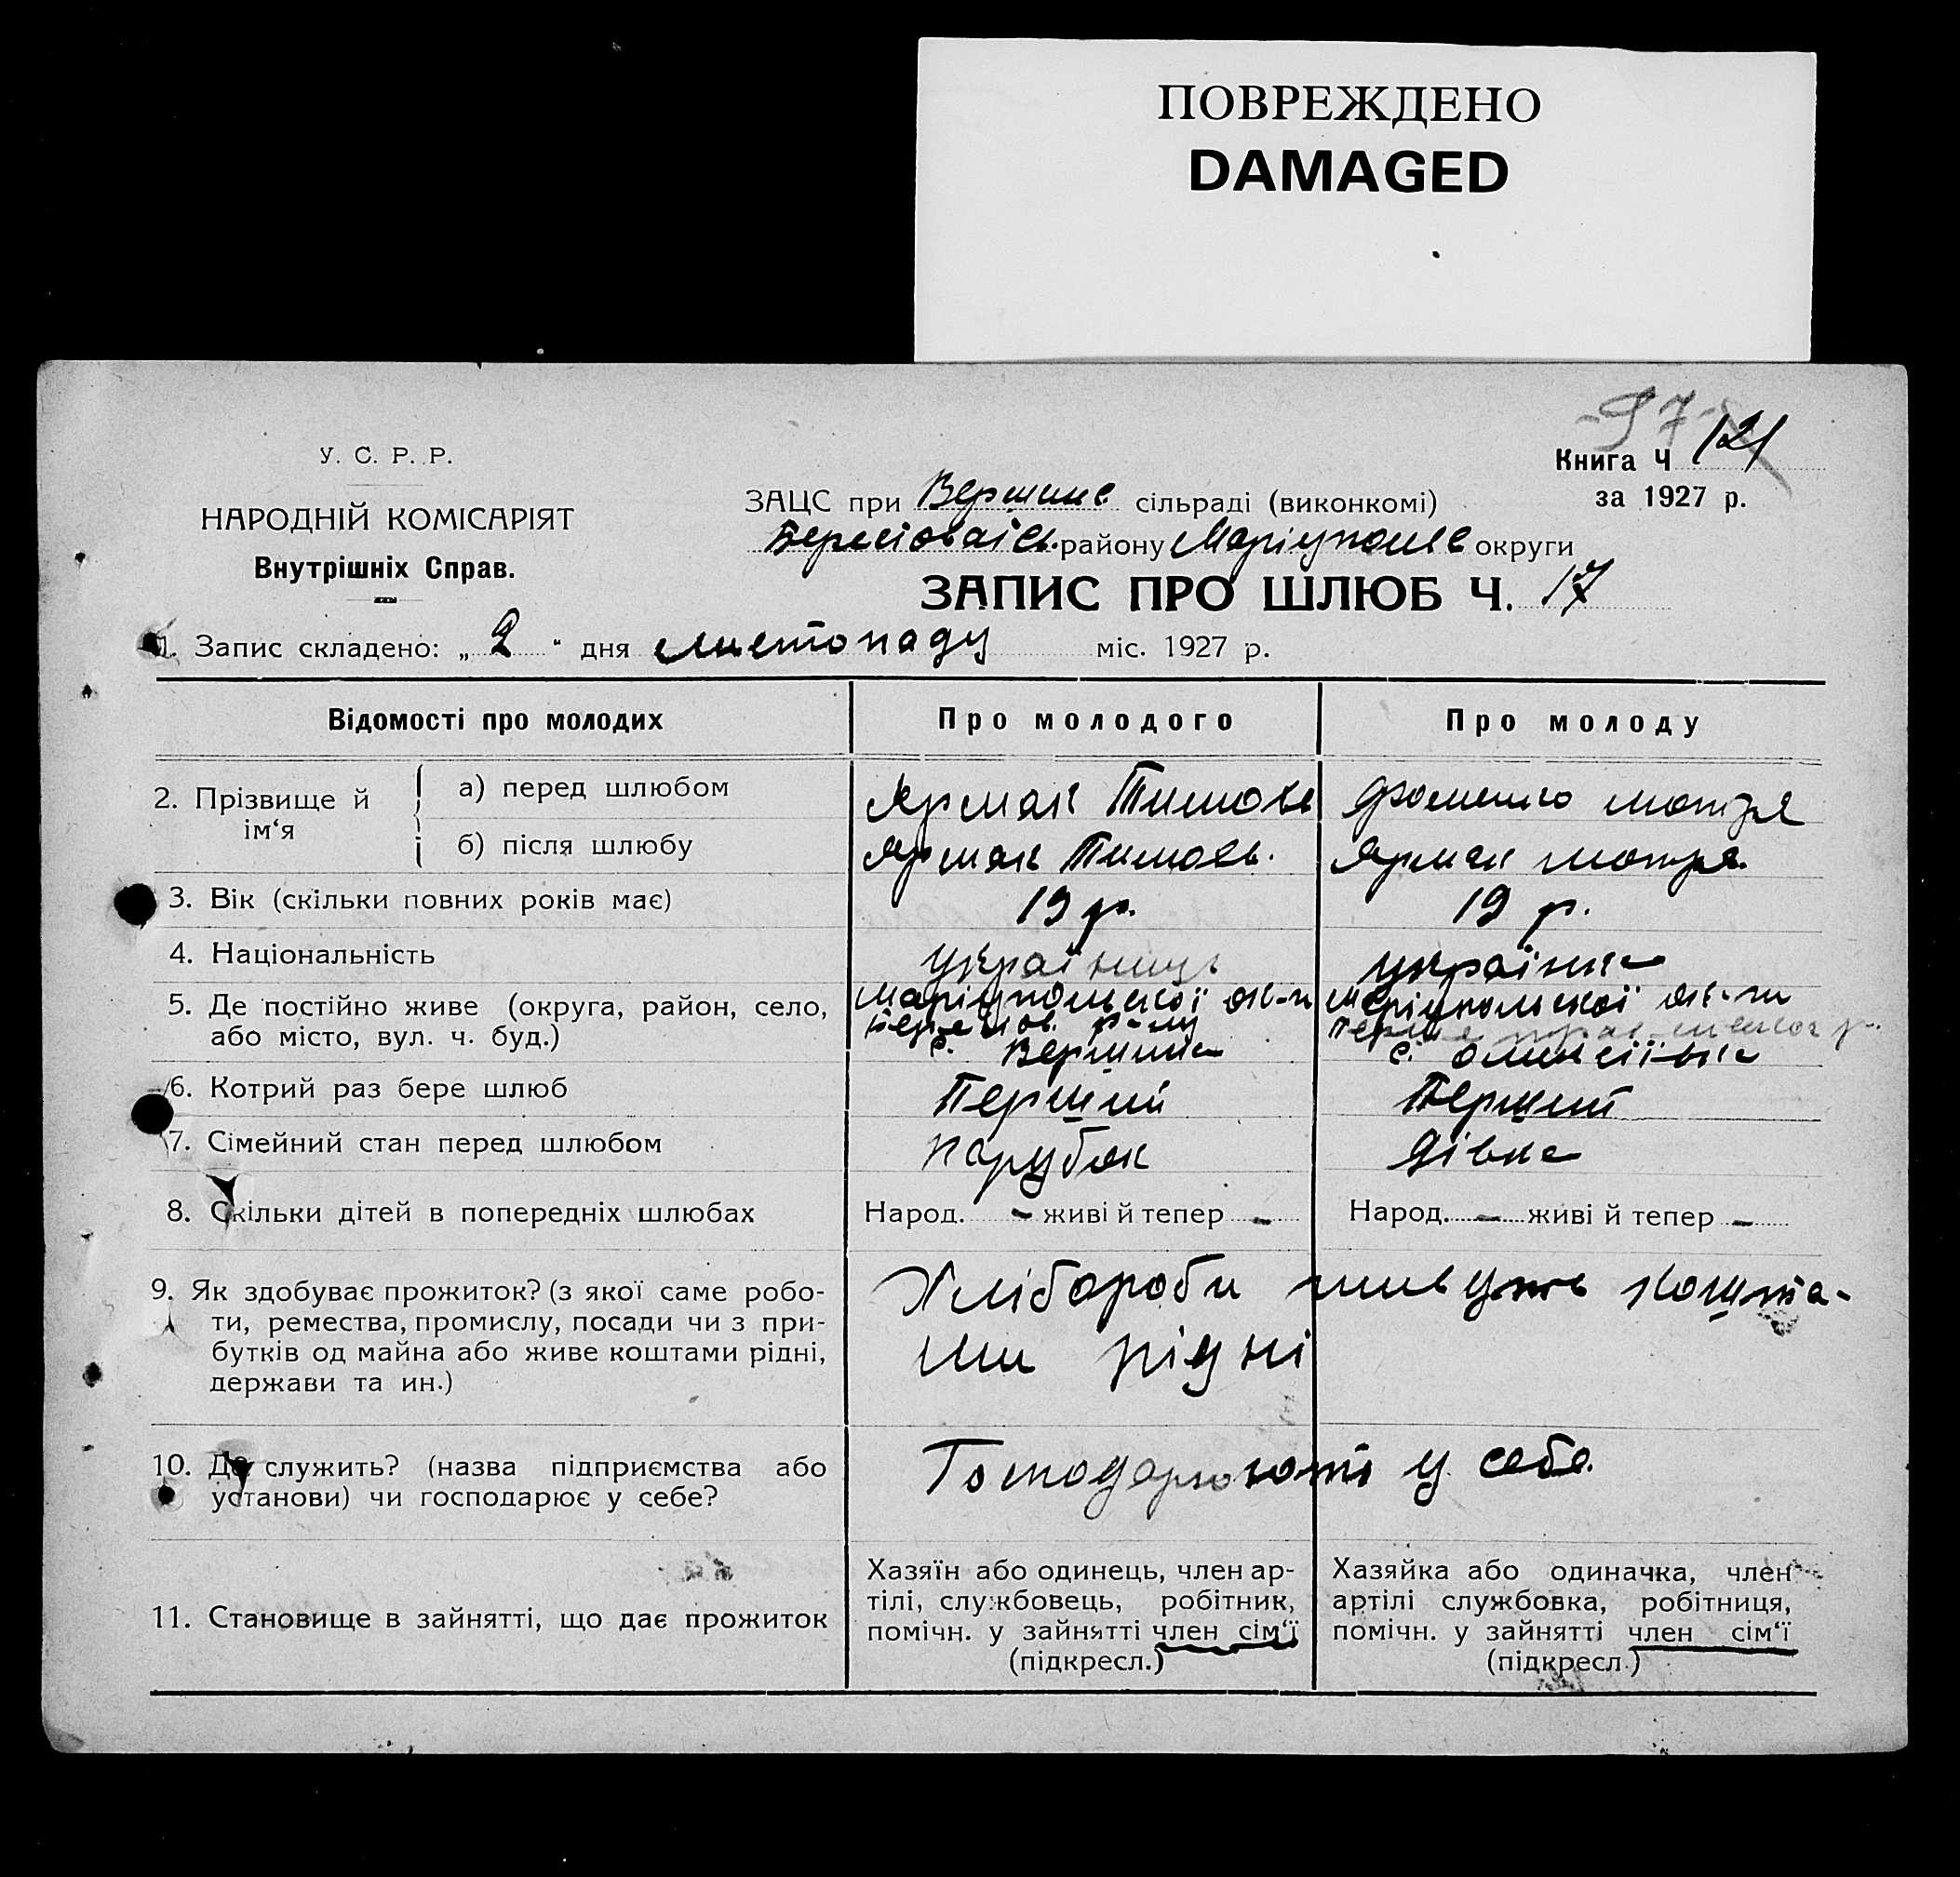 ПОВРЕЖДЕНО
DAMAGED
У. С. Р. Р.
НАРОДНІЙ КОМІСАРІЯТ
Внутрішніх Справ.
-97-
Книга Ч 121
за 1927 р.
ЗАЦС при Вершине сільраді (виконкомі)
району округи
ЗАПИС ПРО ШЛЮБ Ч. 17
1. Запис складено: „ 2 " дня листопаду міс. 1927 р.
Відомості про молодих
Про молодого
Про молоду
2. Прізвище й ім'я
а) перед шлюбом
Ярмак Тимохв
Фоменко мотря
б) після шлюбу
Ярмак Тимохв.
Ярмак мотря.
3. Вік (скільки повних років має)
19 р.
19 р.
4. Національність
українець
українка
5. Де постійно живе (округа, район, село,
або місто, вул. ч. буд.)
маріупольської ок-и
р-ну
с. Вершина
маріупольської ок-ги
с.
6. Котрий раз бере шлюб
Перший
Перший
7. Сімейний стан перед шлюбом
парубок
дівка
8. Скільки дітей в попередніх шлюбах
Народ. - живі й тепер -
Народ. - живі й тепер -
9. Як здобуває прожиток? (з якої саме робо-
ти, ремества, промислу, посади чи з при-
бутків од майна або живе коштами рідні,
держави та ин.)
Хлібороби живуть кошта-
ми рідні
10. Де служить? (назва підприємства або
установи) чи господарює у себе?
Господарюють у себе.
11. Становище в зайнятті, що дає прожиток
Хазяїн або одинець, член ар-
тілі, службовець, робітник,
помічн. у зайнятті член сім'ї
(підкресл.)
Хазяйка або одиначка, член
артілі службовка, робітниця,
помічн. у зайнятті член сім'ї
(підкресл.)